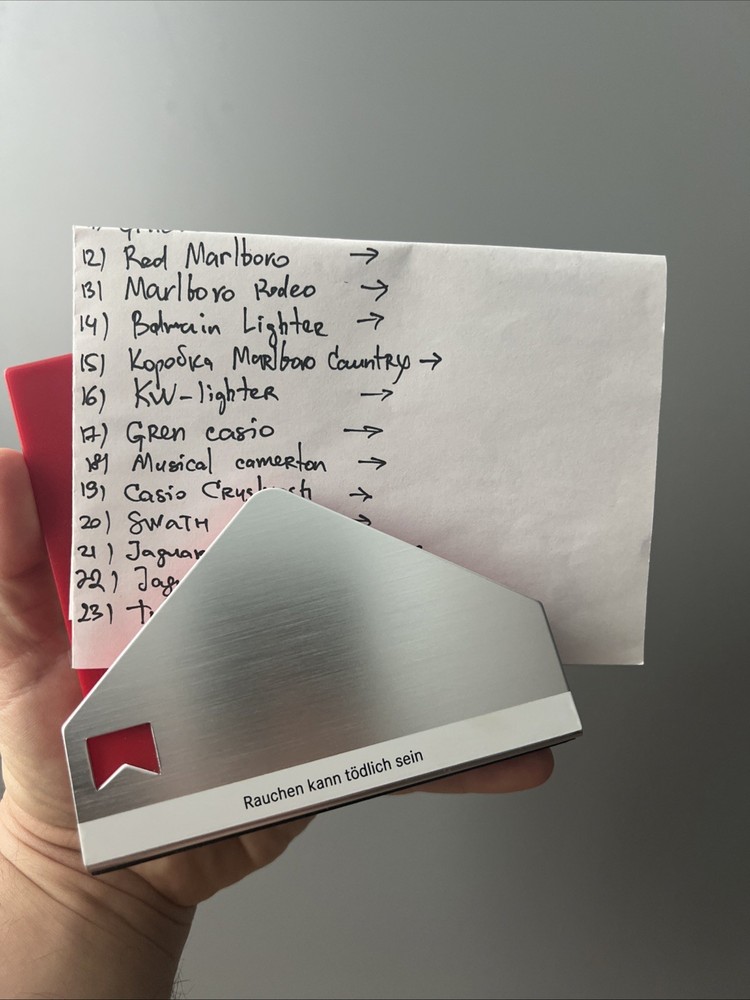 12) Red Marlboro →
13) Marlboro Rodeo →
14) Bahrain Lighter →
15) Коробка Marlboro Country →
16) KW-lighter →
17) Gren casio →
18) Musical camerton →
19) Casio →
20) SWATH →
21) Jaguar
22)
23)
Rauchen kann tödlich sein